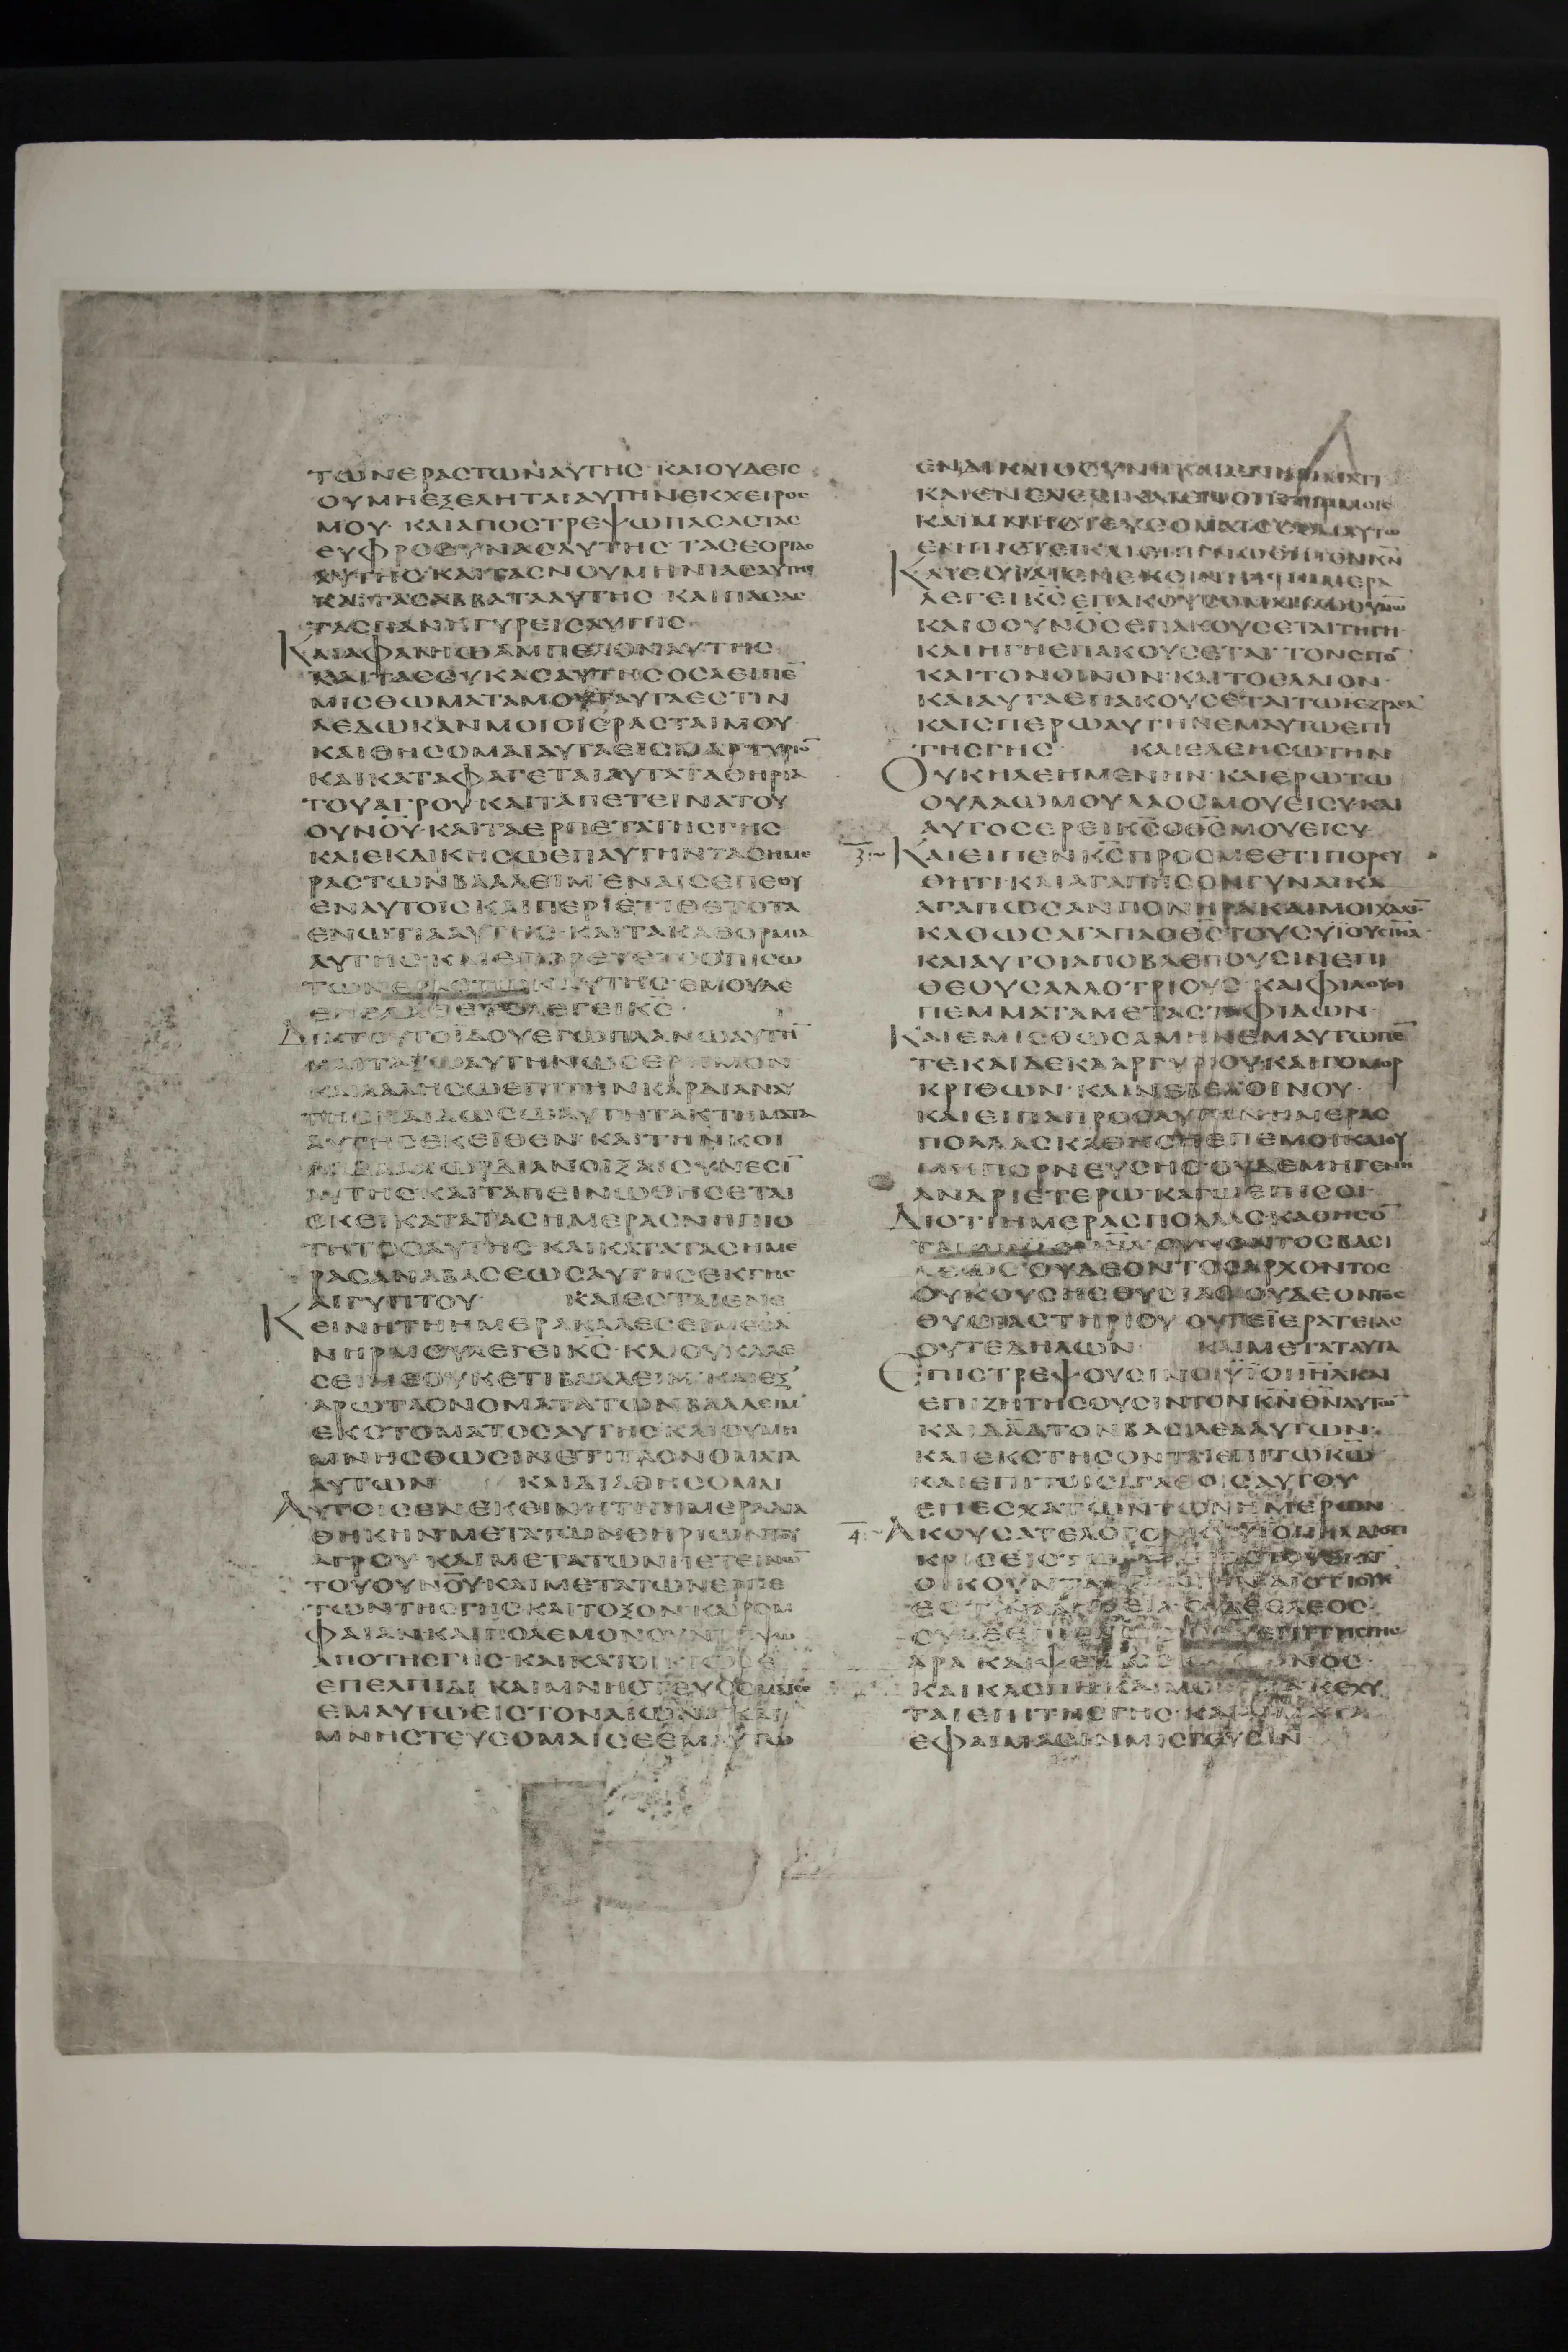 ΤΩΝΕΡΑCΤΩΝΑΥΤΗC·ΚΑΙΟΥΔΕΙC
ΟΥΜΗΕΞΕΛΗΤΑΙΑΥΤΗΝΕΚΧΕΙΡΟC
ΜΟΥ·ΚΑΙΑΠΟCΤΡΕΨΩΠΑCΑCΤΑC
ΕΥΦΡΟCΥΝΑCΑΥΤΗC ΤΑCΕΟΡΤΑC
ΑΥΤΗC·ΚΑΙΤΑCΝΟΥΜΗΝΙΑCΑΥΤΗC
ΚΑΙΤΑCΑΒΒΑΤΑΑΥΤΗC ΚΑΙΠΑCΑC
ΤΑCΠΑΝΗΓΥΡΕΙCΑΥΤΗC·
ΚΑΙΑΦΑΝΙΩΑΜΠΕΛΟΝΑΥΤΗC
ΚΑΙΤΑCCΥΚΑCΑΥΤΗCΟCΑΕΙΠΕ̅
ΜΙCΘΩΜΑΤΑΜΟΥΤΑΥΤΑΕCΤΙΝ
ΑΕΔΩΚΑΝΜΟΙΟΙΕΡΑCΤΑΙΜΟΥ
ΚΑΙΘΗCΟΜΑΙΑΥΤΑΕΙCΜΑΡΤΥΡΙΟ̅
ΚΑΙΚΑΤΑΦΑΓΕΤΑΙΑΥΤΑΤΑΘΗΡΙΑ
ΤΟΥΑΓΡΟΥ·ΚΑΙΤΑΠΕΤΕΙΝΑΤΟΥ
ΟΥΝΟΥ·ΚΑΙΤΑΕΡΠΕΤΑΤΗCΓΗC
ΚΑΙΕΚΔΙΚΗCΩΕΠΑΥΤΗΝΤΑCΗΜΕ
ΡΑCΤΩΝΒΑΑΛΕΙΜ·ΕΝΑΙCΕΠΕΘΥ
ΕΝΑΥΤΟΙC·ΚΑΙΠΕΡΙΕΤΙΘΕΤΟΤΑ
ΕΝΩΤΙΑΑΥΤΗC·ΚΑΙΤΑΚΑΘΟΡΜΙΑ
ΑΥΤΗC·ΚΑΙΕΠΟΡΕΥΕΤΟΟΠΙCΩ
ΤΩΝΕΡΑCΤΩΝΑΥΤΗC·ΕΜΟΥΔΕ
ΕΠΕΛΑΘΕΤΟΛΕΓΕΙΚ̅C̅·
ΔΙΑΤΟΥΤΟΙΔΟΥΕΓΩΠΛΑΝΩΑΥΤΗ̅
ΚΑΙΤΑΞΩΑΥΤΗΝΩCΕΡΗΜΟΝ
ΚΑΙΛΑΛΗCΩΕΠΙΤΗΝΚΑΡΔΙΑΝΑΥ
ΤΗC·ΚΑΙΔΩCΩΑΥΤΗΤΑΚΤΗΜΑΤΑ
ΑΥΤΗCΕΚΕΙΘΕΝ·ΚΑΙΤΗΝΚΟΙ
ΛΑΔΑΑΧΩΡΔΙΑΝΟΙΞΑΙCΥΝΕCΙ̅
ΑΥΤΗC·ΚΑΙΤΑΠΕΙΝΩΘΗCΕΤΑΙ
ΕΚΕΙΚΑΤΑΤΑCΗΜΕΡΑCΝΗΠΙΟ
ΤΗΤΟCΑΥΤΗC·ΚΑΙΚΑΤΑΤΑCΗΜΕ
ΡΑCΑΝΑΒΑCΕΩCΑΥΤΗCΕΚΓΗC
ΑΙΓΥΠΤΟΥ ΚΑΙΕCΤΑΙΕΝΕ
ΚΕΙΝΗΤΗΗΜΕΡΑΚΑΛΕCΕΙΜΕΟΑ
ΝΗΡΜΟΥΛΕΓΕΙΚ̅C̅·ΚΑΙΟΥΚΑΛΕ
CΕΙΜΕΟΥΚΕΤΙΒΑΑΛΕΙΜ·ΚΑΙΕΞ
ΑΡΩΤΑΟΝΟΜΑΤΑΤΩΝΒΑΑΛΕΙΜ
ΕΚCΤΟΜΑΤΟCΑΥΤΗC·ΚΑΙΟΥΜΗ
ΜΝΗCΘΩCΙΝΕΤΙΤΑΟΝΟΜΑΤΑ
ΑΥΤΩΝ ΚΑΙΔΙΑΘΗCΟΜΑΙ
ΑΥΤΟΙCΕΝΕΚΕΙΝΗΤΗΗΜΕΡΑΔΙΑ
ΘΗΚΗΝΜΕΤΑΤΩΝΘΗΡΙΩΝΤΟΥ
ΑΓΡΟΥ·ΚΑΙΜΕΤΑΤΩΝΠΕΤΕΙΝΩ̅
ΤΟΥΟΥΝΟΥ·ΚΑΙΜΕΤΑΤΩΝΕΡΠΕ
ΤΩΝΤΗCΓΗC·ΚΑΙΤΟΞΟΝ·ΚΑΙΡΟΜ
ΦΑΙΑΝ·ΚΑΙΠΟΛΕΜΟΝCΥΝΤΡΙΨΩ
ΑΠΟΤΗCΓΗC·ΚΑΙΚΑΤΟΙΚΙΩCΕ
ΕΠΕΛΠΙΔΙ ΚΑΙΜΝΗCΤΕΥCΟΜΑΙCΕ
ΕΜΑΥΤΩΕΙCΤΟΝΑΙΩΝΑ·ΚΑΙ
ΜΝΗCΤΕΥCΟΜΑΙCΕΕΜΑΥΤΩ
ΚΑΙΜΝΗCΤΕΥCΟΜΑΙCΕΕΜΑΥΤΩ
ΚΑΤΕΥΡΑΙΕΝΕΚΕΙΝΗΤΗΗΜΕΡΑ
ΛΕΓΕΙΚ̅C̅ΕΠΑΚΟΥCΟΜΑΙΤΩΟΥΝΩ
ΚΑΙΟΟΥΝΟCΕΠΑΚΟΥCΕΤΑΙΤΗΓΗ
ΚΑΙΗΓΗΕΠΑΚΟΥCΕΤΑΙ ΤΟΝCΙΤΟ̅
ΚΑΙΤΟΝΟΙΝΟΝ·ΚΑΙΤΟΕΛΑΙΟΝ·
ΚΑΙΑΥΤΑΕΠΑΚΟΥCΕΤΑΙΤΩΙΕΖΡΑΕΛ
ΚΑΙCΠΕΡΩΑΥΤΗΝΕΜΑΥΤΩΕΠΙ
ΤΗCΓΗC ΚΑΙΕΛΕΗCΩΤΗΝ
ΟΥΚΗΛΕΗΜΕΝΗΝ·ΚΑΙΕΡΩΤΩ
ΟΥΛΑΩΜΟΥΛΑΟCΜΟΥΕΙCΥ·ΚΑΙ
ΑΥΤΟCΕΡΕΙΚ̅C̅ΟΘ̅C̅ΜΟΥΕΙCΥ·
3:~ ΚΑΙΕΙΠΕΝΚ̅C̅ΠΡΟCΜΕΕΤΙΠΟΡΕΥ
ΘΗΤΙ·ΚΑΙΑΓΑΠΗCΟΝΓΥΝΑΙΚΑ
ΑΓΑΠΩCΑΝΠΟΝΗΡΑΚΑΙΜΟΙΧΑΛΙ̅
ΚΑΘΩCΑΓΑΠΑΟΘ̅C̅ΤΟΥCΥΙΟΥCΙΗΛ·
ΚΑΙΑΥΤΟΙΑΠΟΒΛΕΠΟΥCΙΝΕΠΙ
ΘΕΟΥCΑΛΛΟΤΡΙΟΥC·ΚΑΙΦΙΛΟΥCΙ
ΠΕΜΜΑΤΑΜΕΤΑCΤΑΦΙΔΩΝ·
ΚΑΙΕΜΙCΘΩCΑΜΗΝΕΜΑΥΤΩΠΕ̅
ΤΕΚΑΙΔΕΚΑΑΡΓΥΡΙΟΥ·ΚΑΙΓΟΜΟΡ
ΚΡΙΘΩΝ·ΚΑΙΝΕΒΕΛΟΙΝΟΥ·
ΚΑΙΕΙΠΑΠΡΟCΑΥΤΗΝΗΜΕΡΑC
ΠΟΛΛΑCΚΑΘΗCΗΕΠΕΜΟΙ·ΚΑΙΟΥ
ΜΗΠΟΡΝΕΥCΗC·ΟΥΔΕΜΗΓΕΝΗ
ΑΝΔΡΙΕΤΕΡΩ·ΚΑΓΩΕΠΙCΟΙ·
ΔΙΟΤΙΗΜΕΡΑCΠΟΛΛΑCΚΑΘΗCΟ̅
ΤΑΙΟΙΥΙΟΙΙΗΛΟΥΚΟΝΤΟCΒΑCΙ
ΛΕΩC·ΟΥΔΕΟΝΤΟCΑΡΧΟΝΤΟC
ΟΥΚΟΥCΗCΘΥCΙΑC·ΟΥΔΕΟΝΤΟC
ΘΥCΙΑCΤΗΡΙΟΥ ΟΥΤΕΙΕΡΑΤΕΙΑC
ΟΥΤΕΔΗΛΩΝ· ΚΑΙΜΕΤΑΤΑΥΤΑ
ΕΠΙCΤΡΕΨΟΥCΙΝΟΙΥΙΟΙΙΗΛΚΑΙ
ΕΠΙΖΗΤΗCΟΥCΙΝΤΟΝΚ̅Ν̅Θ̅Ν̅ΑΥΤΩ̅
ΚΑΙΔΑ̅Δ̅ΤΟΝΒΑCΙΛΕΑΑΥΤΩΝ·
ΚΑΙΕΚCΤΗCΟΝΤΑΙΕΠΙΤΩΚ̅Ω̅
ΚΑΙΕΠΙΤΟΙCΑΓΑΘΟΙCΑΥΤΟΥ
ΕΠΕCΧΑΤΩΝΤΩΝΗΜΕΡΩΝ
4:~ ΑΚΟΥCΑΤΕΛΟΓΟΝΚ̅Υ̅ΥΙΟΙΙΗΛΔΙΟΤΙ
ΕCΤΙΝΑΛΗΘΕΙΑ·ΟΥΔΕΕΛΕΟC·
ΑΡΑ·ΚΑΙΨΕΥΔΟC
ΚΑΙΚΛΟΠΗ·ΚΑΙΜΟΙΧΕΙΑΚΕΧΥ
ΤΑΙΕΠΙΤΗCΓΗC·ΚΑΙΑΙΜΑΤΑ
ΕΦΑΙΜΑCΙΝΜΙCΓΟΥCΙΝ